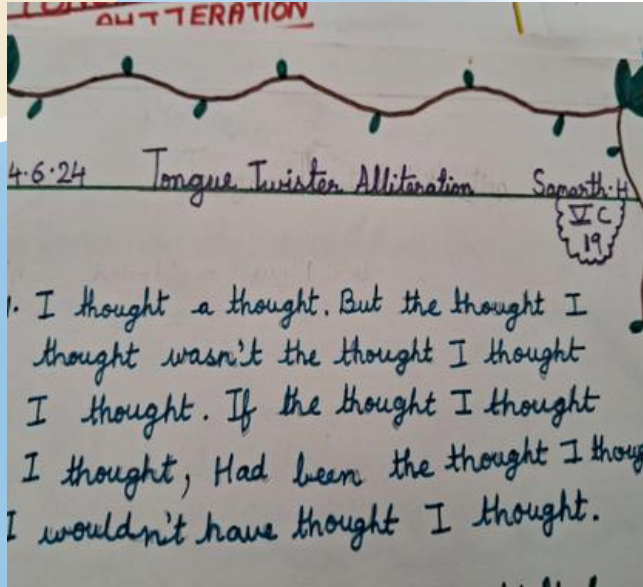 ALLITERATION
4.6.24 Tongue Twister Alliteration Samarth.H
V C
19
1. I thought a thought. But the thought I
thought wasn't the thought I thought
I thought. If the thought I thought
I thought, Had been the thought I thoug
I wouldn't have thought I thought.